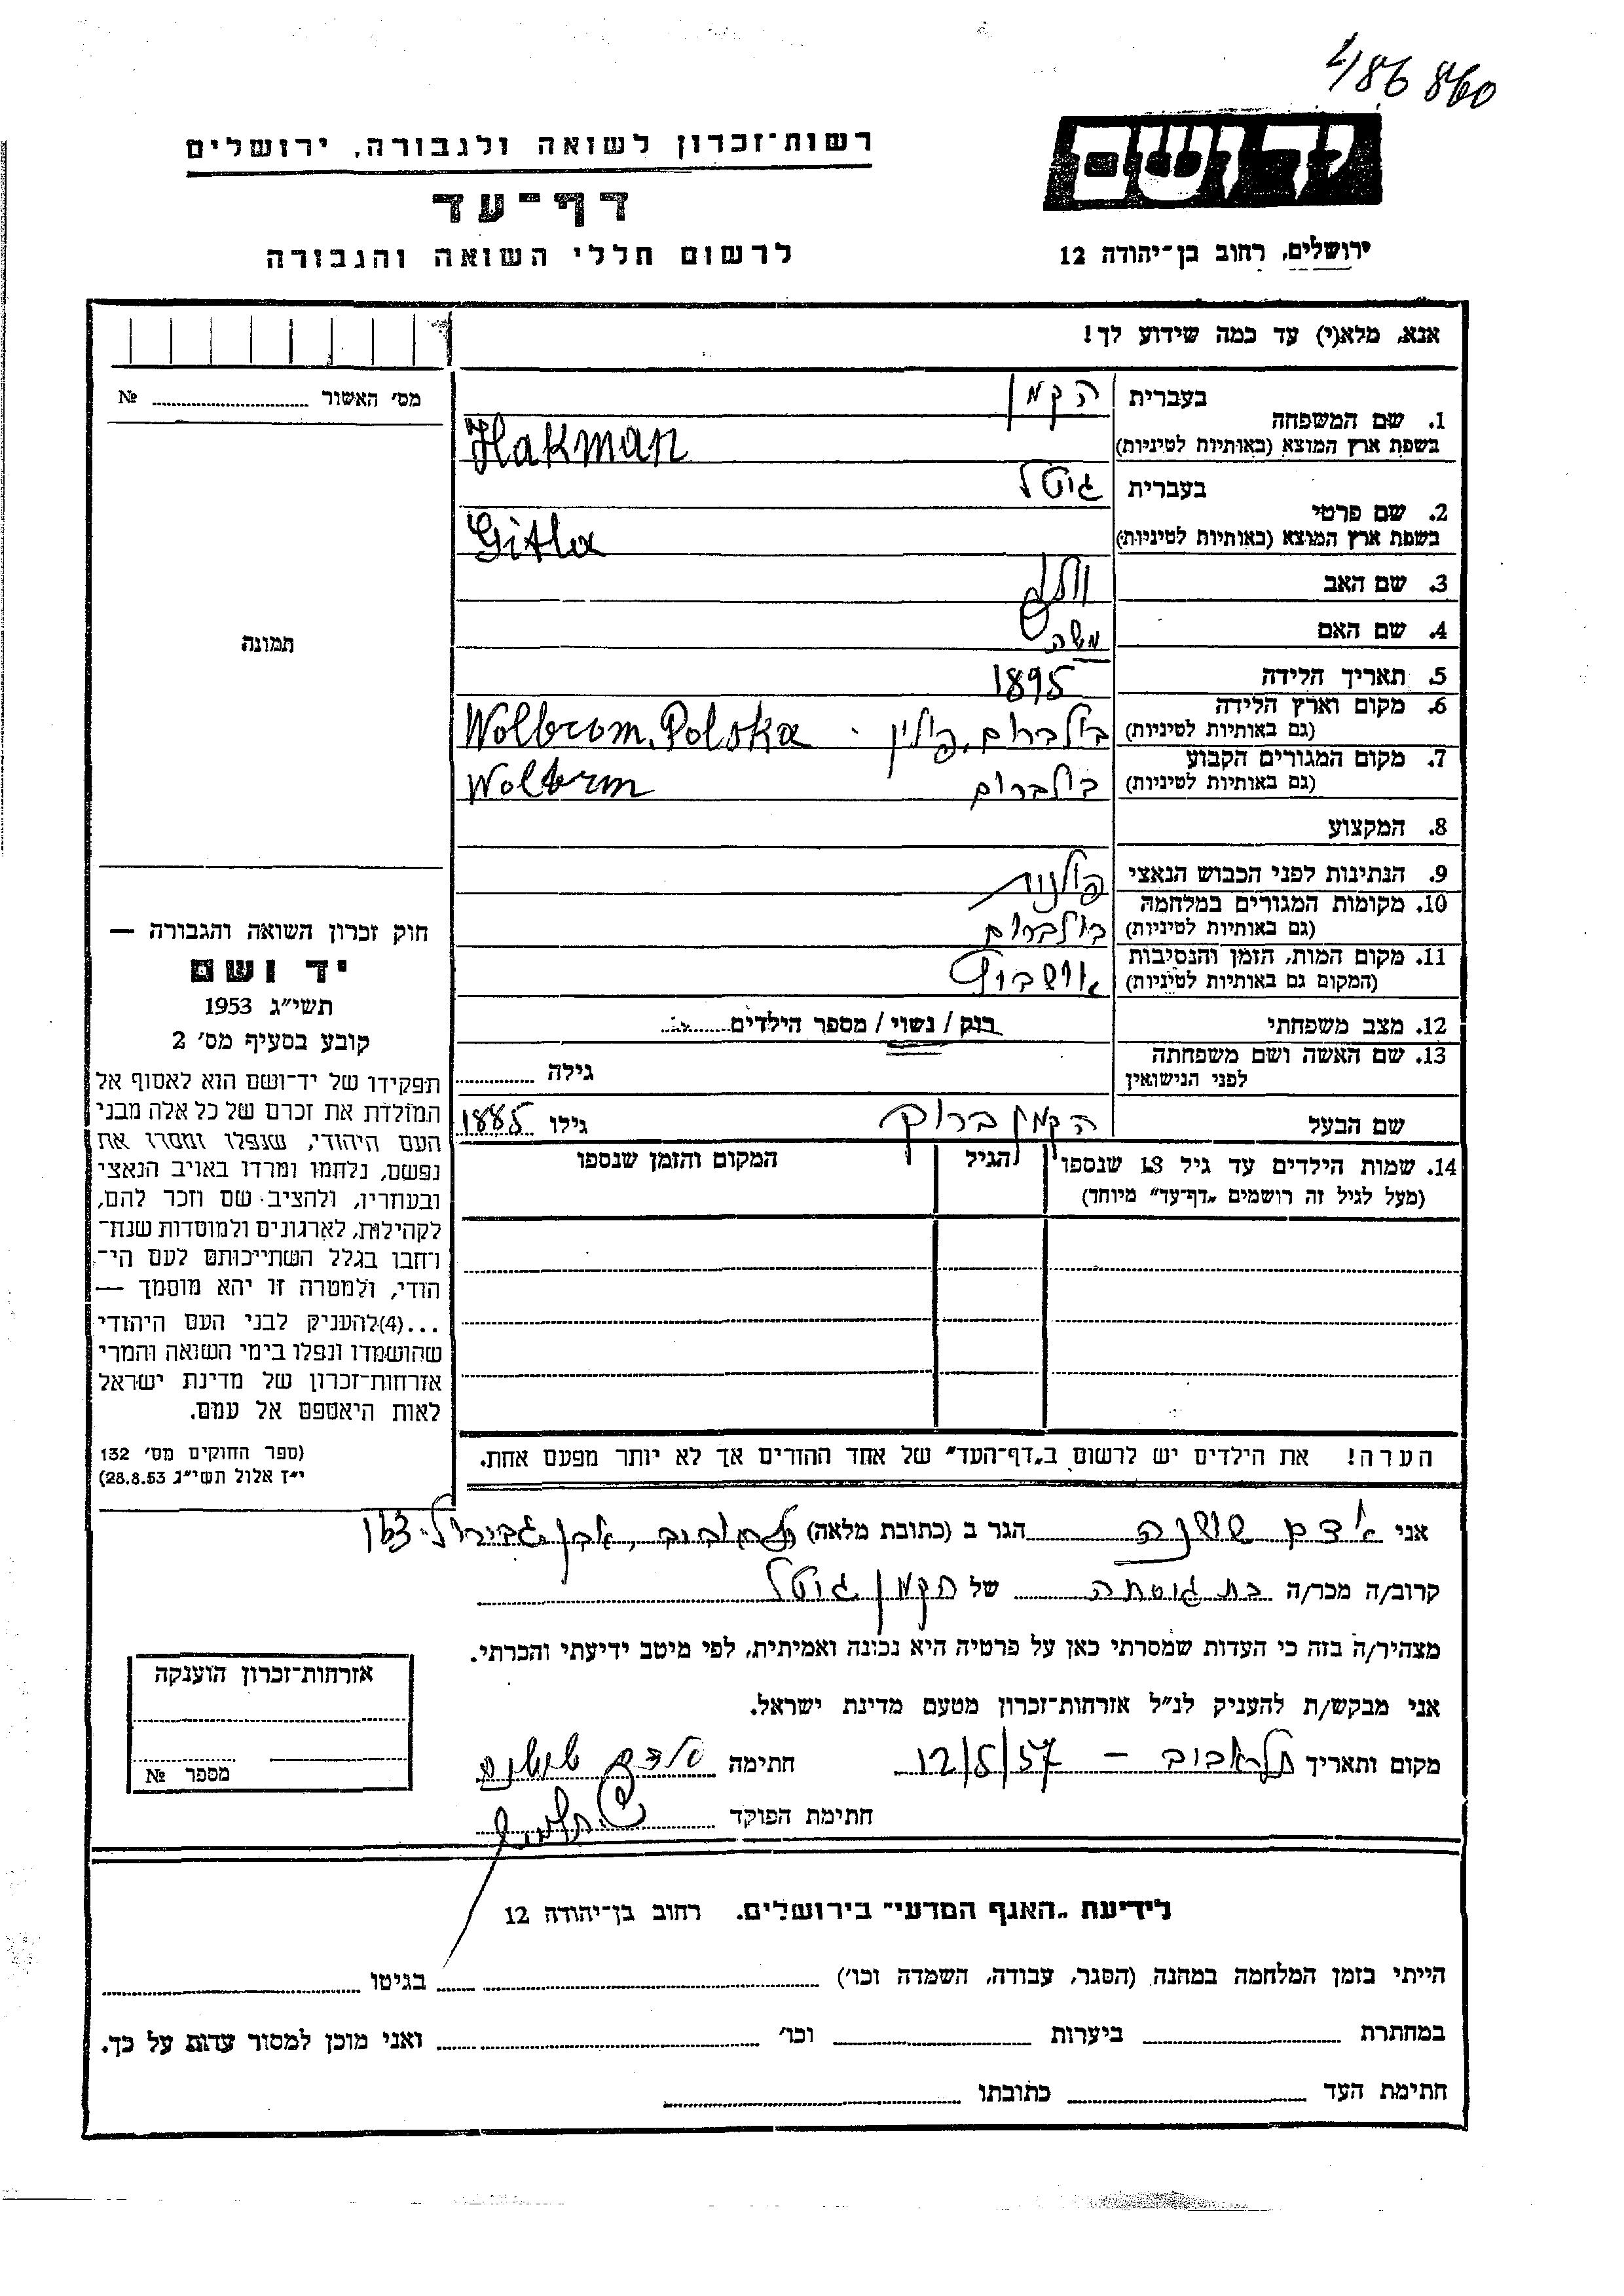 486860
ידושם
רשות־זכרון לשואה ולגבורה, ירושלים
דף־עד
לרשום חללי השואה והגבורה
ירושלים, רחוב בן־יהודה 12
אנא, מלא(י) עד כמה שידוע לך!
מס׳ האשור № 
1. שם המשפחה בעברית הקמן
בשפת ארץ המוצא (באותיות לטיניות) Hakman
2. שם פרטי בעברית גוטל
בשפת ארץ המוצא (באותיות לטיניות) Gitla
3. שם האב
4. שם האם משה
5. תאריך הלידה 1895
6. מקום וארץ הלידה (גם באותיות לטיניות) בולברום, פולין Wolbrom, Polska
7. מקום המגורים הקבוע (גם באותיות לטיניות) בולברום Wolbrm
8. המקצוע
9. הנתינות לפני הכבוש הנאצי פולנית
10. מקומות המגורים במלחמה (גם באותיות לטיניות) בולברום
11. מקום המות, הזמן והנסיבות (המקום גם באותיות לטיניות) אושבוץ
12. מצב משפחתי רוק / נשוי / מספר הילדים
13. שם האשה ושם משפחתה לפני הנישואין גילה
שם הבעל הקמן ברוך גילו 1885
14. שמות הילדים עד גיל 18 שנספו הגיל המקום והזמן שנספו
(מעל לגיל זה רושמים „דף־עד״ מיוחד)
הערה! את הילדים יש לרשום ב„דף־העד״ של אחד ההורים אך לא יותר מפעם אחת.
תמונה
חוק זכרון השואה והגבורה —
יד ושם
תשי״ג 1953
קובע בסעיף מס׳ 2
תפקידו של יד־ושם הוא לאסוף אל
המולדת את זכרם של כל אלה מבני
העם היהודי, שנפלו ומסרו את
נפשם, נלחמו ומרדו באויב הנאצי
ובעוזריו, ולהציב שם וזכר להם,
לקהילות, לארגונים ולמוסדות שנח־
רחבו בגלל השתייכותם לעם הי־
הודי, ולמטרה זו יהא מוסמך —
...(4)להעניק לבני העם היהודי
שהושמדו ונפלו בימי השואה והמרי
אזרחות־זכרון של מדינת ישראל
לאות היאספם אל עמם.
(ספר החוקים מס׳ 132
י״ז אלול תשי״ג 28.8.53)
אני אדם שושנה הגר ב (כתובת מלאה) תל אביב, אבן גבירול
קרוב/ה מכר/ה בת גוסתה של הקמן גוטל
מצהיר/ה בזה כי העדות שמסרתי כאן על פרטיה היא נכונה ואמיתית, לפי מיטב ידיעתי והכרתי.
אני מבקש/ת להעניק לנ״ל אזרחות־זכרון מטעם מדינת ישראל.
מקום ותאריך תל אביב – 12/5/57 חתימה
חתימת הפוקד
אזרחות־זכרון הוענקה
מספר №
לידיעת „האגף המדעי״ בירושלים. רחוב בן־יהודה 12
הייתי בזמן המלחמה במחנה (הסגר, עבודה, השמדה וכו׳) בגיטו
במחתרת ביערות וכו׳ ואני מוכן למסור עדות על כך.
חתימת העד כתובתו